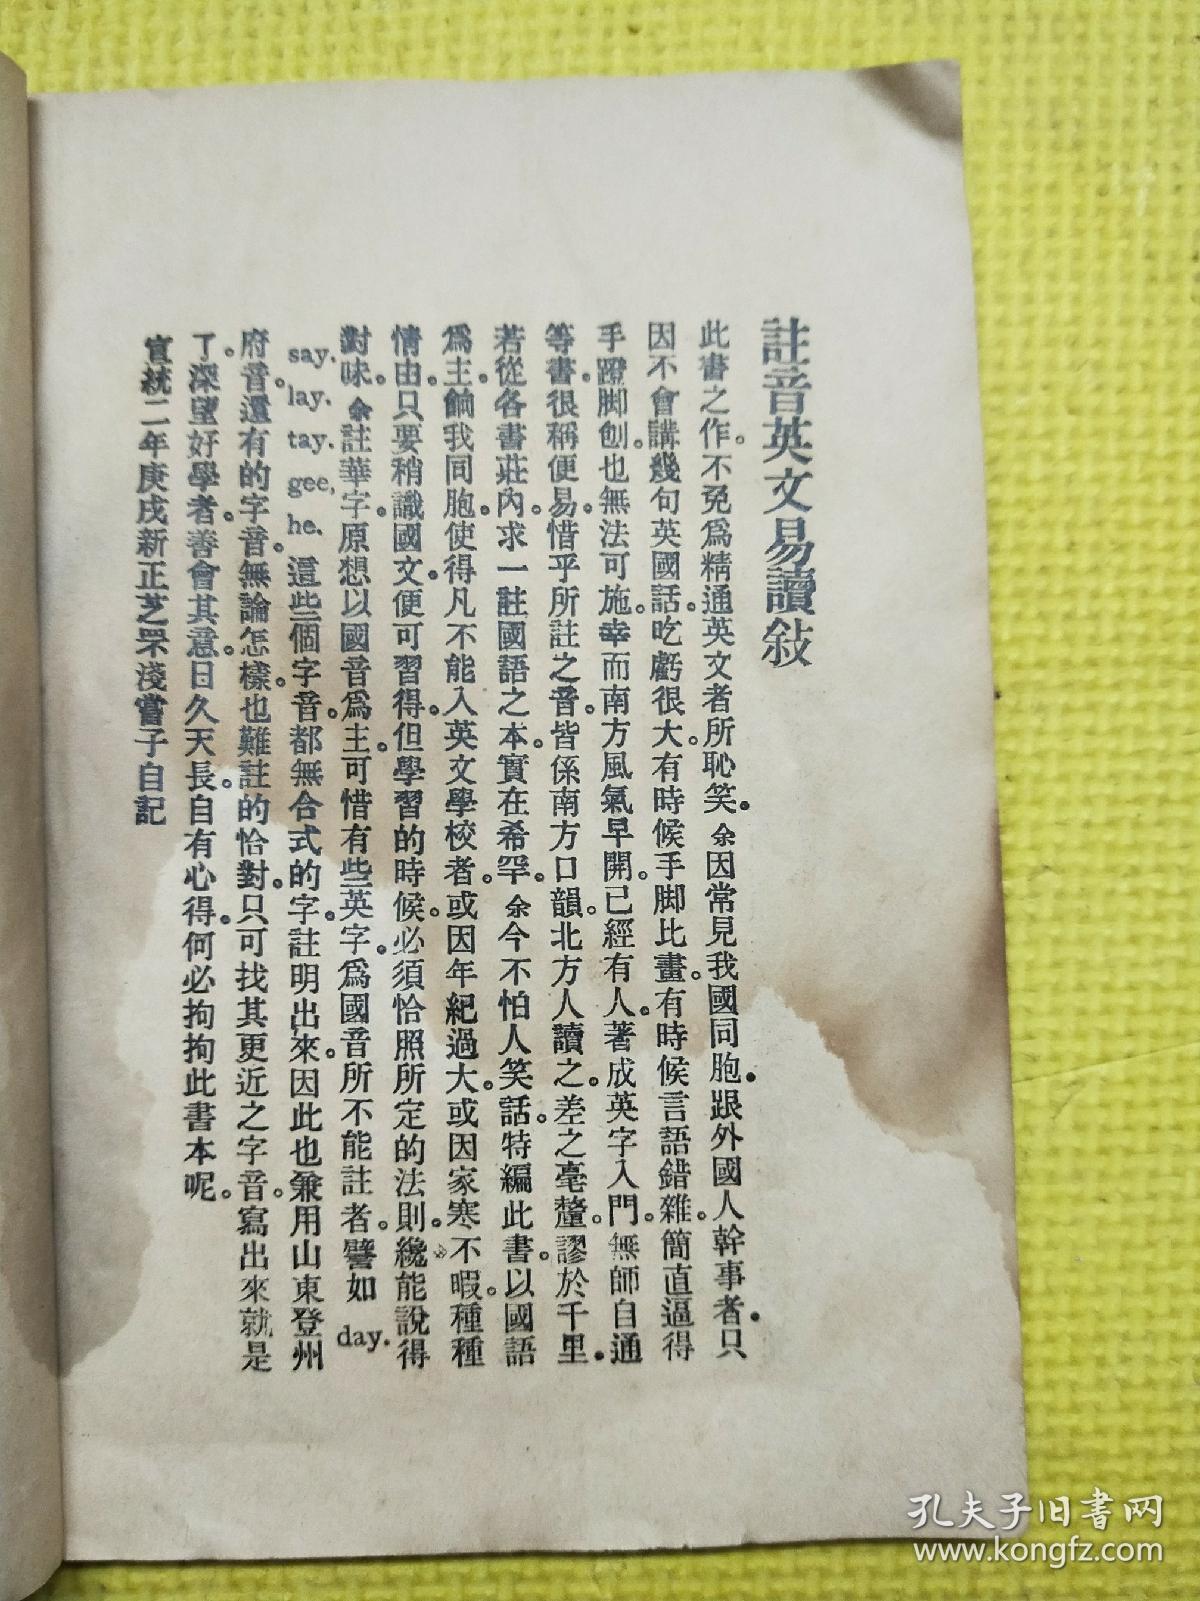 註音英文易讀敍
此書之作。不免爲精通英文者所恥笑。余因常見我國同胞。跟外國人幹事者。只
因不會講幾句英國話。吃虧很大。有時候手脚比畫。有時候言語錯雜。簡直逼得
手蹬脚刨。也無法可施。幸而南方風氣早開。已經有人。著成英字入門。無師自通
等書。很稱便易。惜乎所註之音。皆係南方口韻。北方人讀之。差之毫釐。謬於千里。
若從各書莊內。求一註國語之本。實在希罕。余今不怕人笑話。特編此書。以國語
爲主。餉我同胞。使得凡不能入英文學校者。或因年紀過大。或因家寒不暇。種種
情由。只要稍識國文。便可習得。但學習的時候。必須恰照所定的法則。纔能說得
對味。余註華字。原想以國音爲主。可惜有些英字。爲國音所不能註者。譬如 day.
say. lay. tay. gee, he. 這些個字音。都無合式的字。註明出來。因此也兼用山東登州
府音。還有的字音。無論怎樣。也難註的恰對。只可找其更近之字音。寫出來就是
了。深望好學者。善會其意。日久天長。自有心得。何必拘拘此書本呢。
宣統二年庚戌新正芝罘淺嘗子自記
孔夫子旧书网
www.kongfz.com